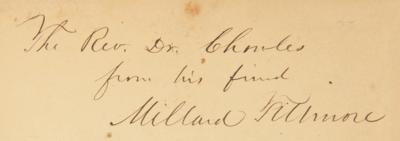 The Rev. Dr. Choules
from his friend
Millard Fillmore